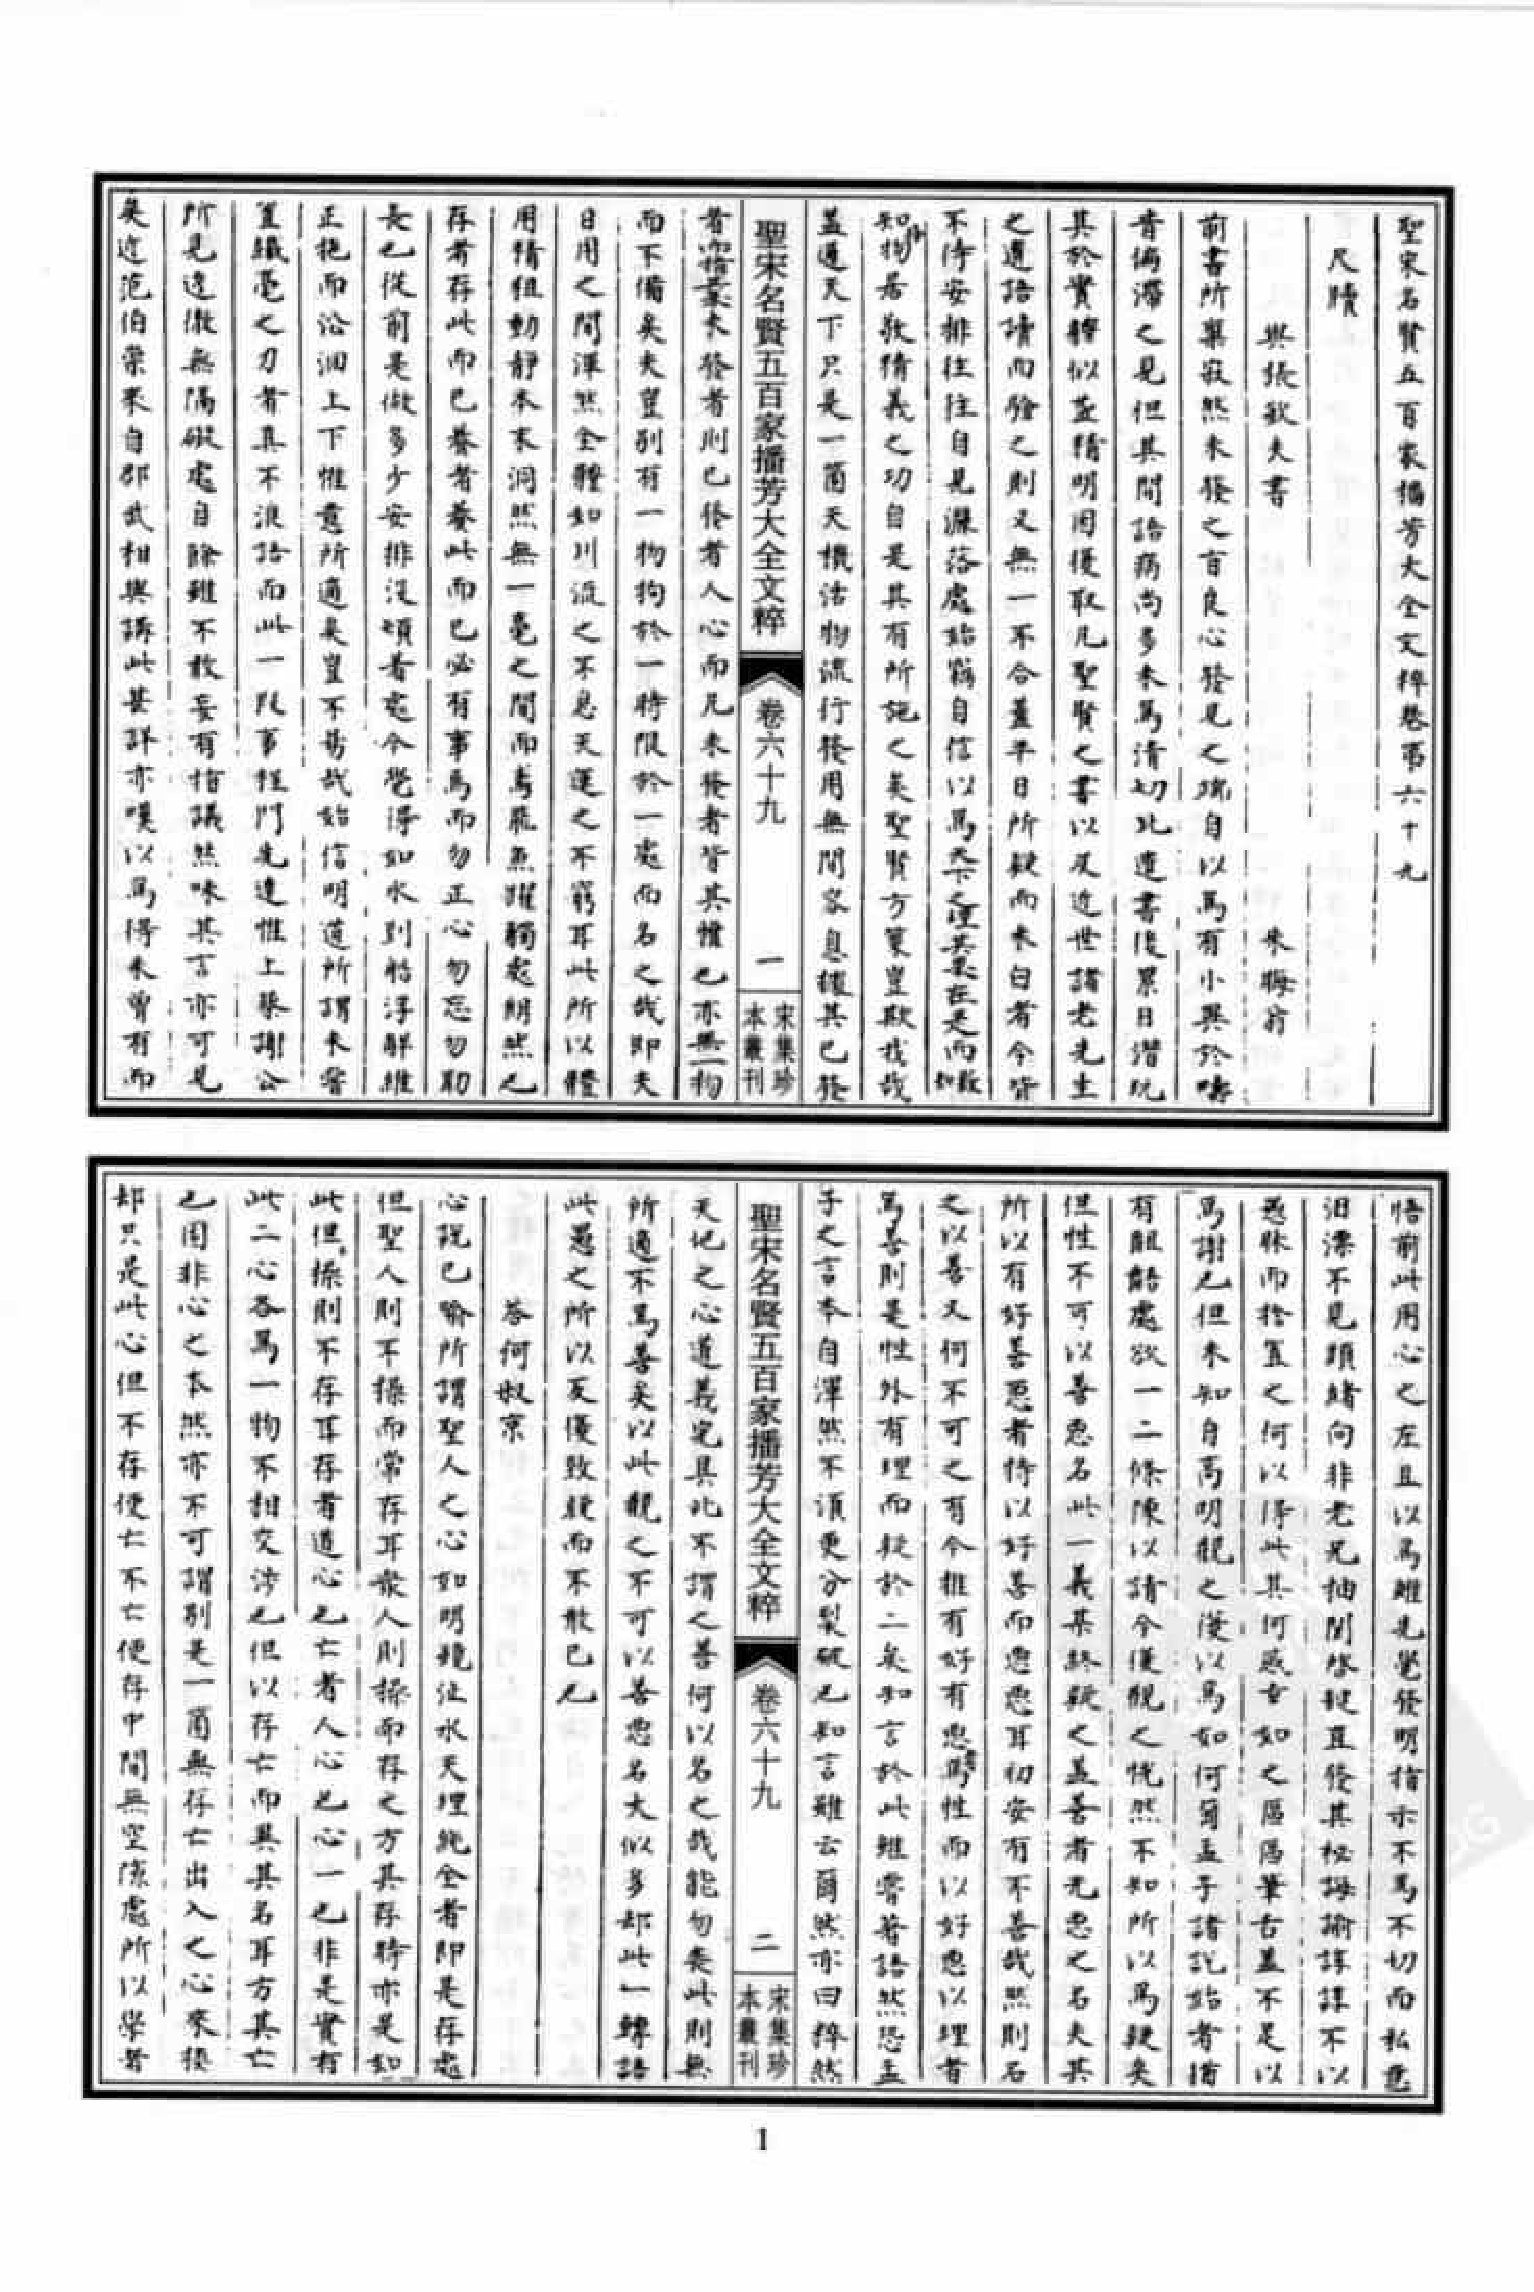 聖宋名賢五百家播芳大全文粹卷第六十九
尺牘
與張欽夫書 朱晦翁
前書所稟寂然未發之旨良心發見之端自以為有小異於疇
昔偏滯之見但其間語病尚多未為清切此遣書後累日潛玩
其於實體似益精明因復取凡聖賢之書以及近世諸老先生
之遺語讀而驗之則又無一不合蓋平日所疑而未白者今皆
不待安排往往自見灑落處始竊自信以為天下之理其果在是而致
知格物居敬精義之功自是其有所施之矣聖賢方策豈欺我哉
蓋通天下只是一箇天機活物流行發用無間容息據其已發
聖宋名賢五百家播芳大全文粹 卷六十九 一 宋集珍本叢刊
者而指其未發者則已發者人心而凡未發者皆其性也亦無一物
而不備矣夫豈別有一物拘於一時限於一處而名之哉即夫
日用之間渾然全體如川流之不息天運之不窮耳此所以體
用精粗動靜本末洞然無一毫之間而鳶飛魚躍觸處朗然也
存者存此而已養者養此而已必有事焉而勿正心勿忘勿助
長也從前是做多少安排沒頓著處今覺得如水到船浮解維
正柁而沿洄上下惟意所適矣豈不易哉始信明道所謂未嘗
置纖毫之力者真不浪語而此一段事程門先達惟上蔡謝公
所見透徹無隔礙處自餘雖不敢妄有指議然味其言亦可見
矣近范伯崇來自邵武相與講此甚詳亦嘆以為得未曾有而
悟前此用心之左且以為雖先覺發明指示不為不切而私意
汨漂不見頭緒向非老兄抽關啓鍵直發其秘誨諭諄諄不以
愚昧而捨置之何以得此其何感幸如之區區筆舌蓋不足以
為謝也但未知自高明觀之復以為如何爾孟子諸說始者猶
有齟齬處欲一二條陳以請今復觀之恍然不知所以為疑矣
但性不可以善惡名此一義某終疑之蓋善者无惡之名夫其
所以有好善惡者特以好善而惡惡耳初安有不善哉然則名
之以善又何不可之有今推有好有惡者為性而以好惡以理者
為善則是性外有理而疑於二矣知言於此雖嘗著語然恐孟
子之言本自渾然不須更分裂破也知言雖云爾然亦曰粹然
聖宋名賢五百家播芳大全文粹 卷六十九 二 宋集珍本叢刊
天地之心道義完具此不謂之善何以名之哉能勿喪此則無
所適不為善矣以此觀之不可以善惡名大似多却此一轉語
此愚之所以反復致疑而不敢已也
荅何叔京
心說已喻所謂聖人之心如明鏡止水天理純全者即是存處
但聖人則不操而常存耳衆人則操而存之方其存時亦是如
此但操則不存耳存者道心也亡者人心也心一也非是實有
此二心各為一物不相交涉也但以存亡而異其名耳方其亡
也固非心之本然亦不可謂別是一箇無存亡出入之心來換
却只是此心但不存便亡不亡便存中間無空隙處所以學者
1